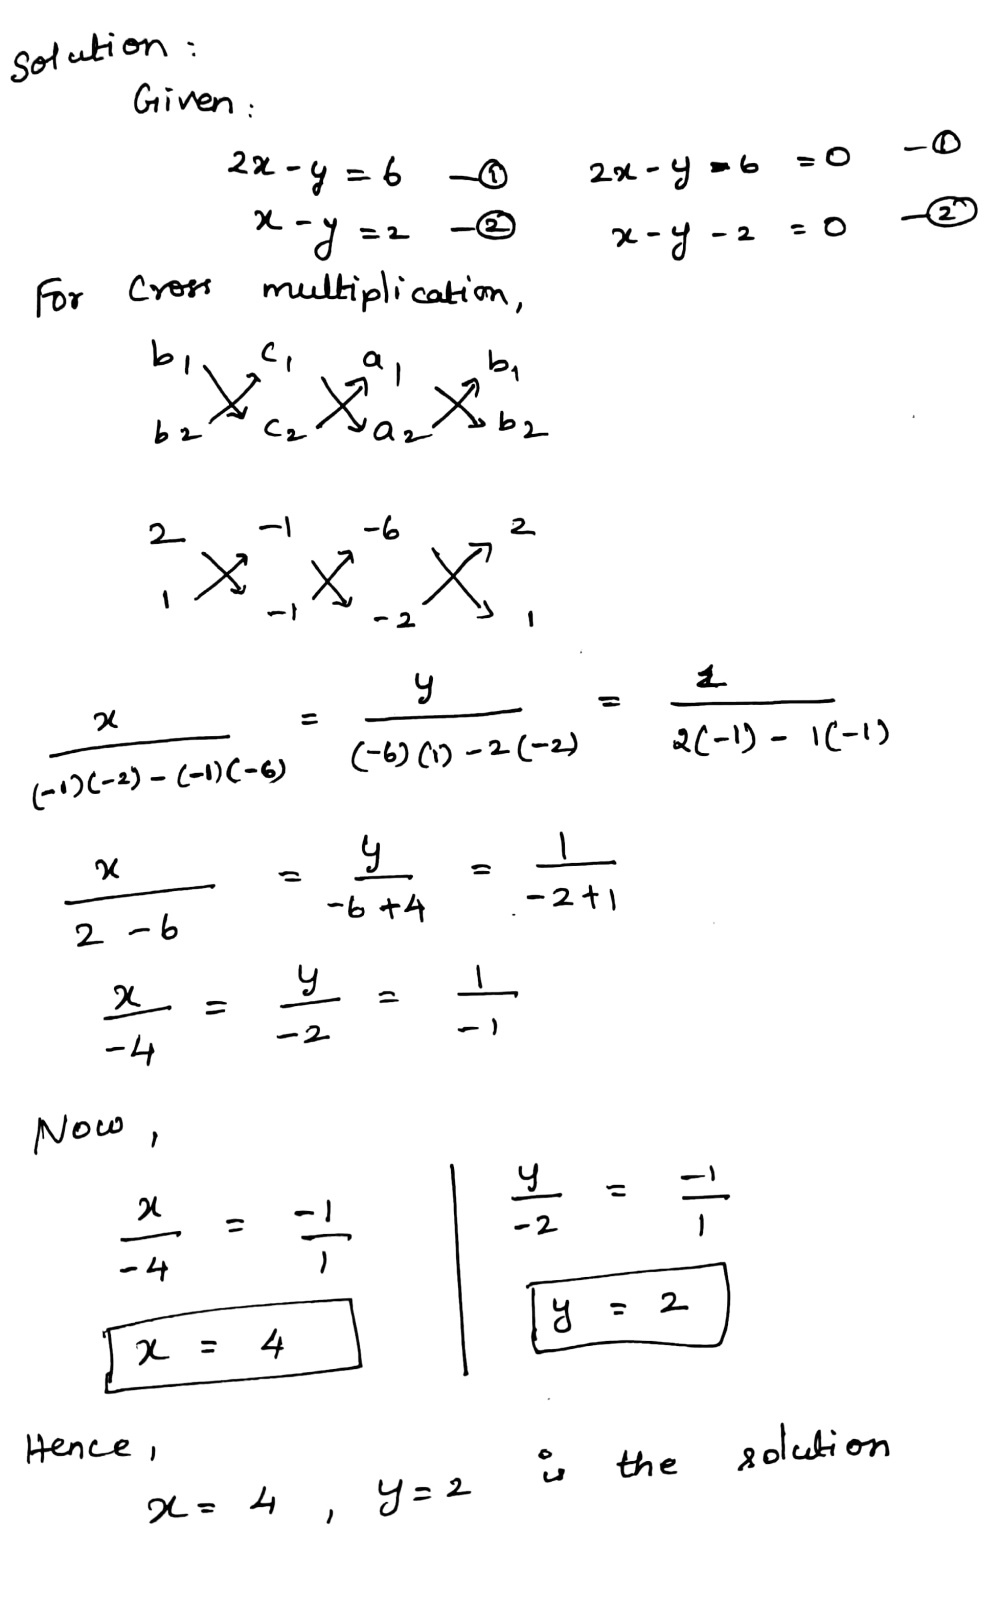 Solution :
Given :
2x - y = 6 - ① 2x - y - 6 = 0 - ①
x - y = 2 - ② x - y - 2 = 0 - ②
For Cross multiplication,
b1 c1 a1 b1
b2 c2 a2 b2
2 -1 -6 2
1 -1 -2 1
x/((-1)(-2) - (-1)(-6)) = y/((-6)(1) - 2(-2)) = 1/(2(-1) - 1(-1))
x/(2 - 6) = y/(-6 + 4) = 1/(-2 + 1)
x/-4 = y/-2 = 1/-1
Now ,
x/-4 = -1/1 y/-2 = -1/1
x = 4 y = 2
Hence ,
x = 4 , y = 2 is the solution